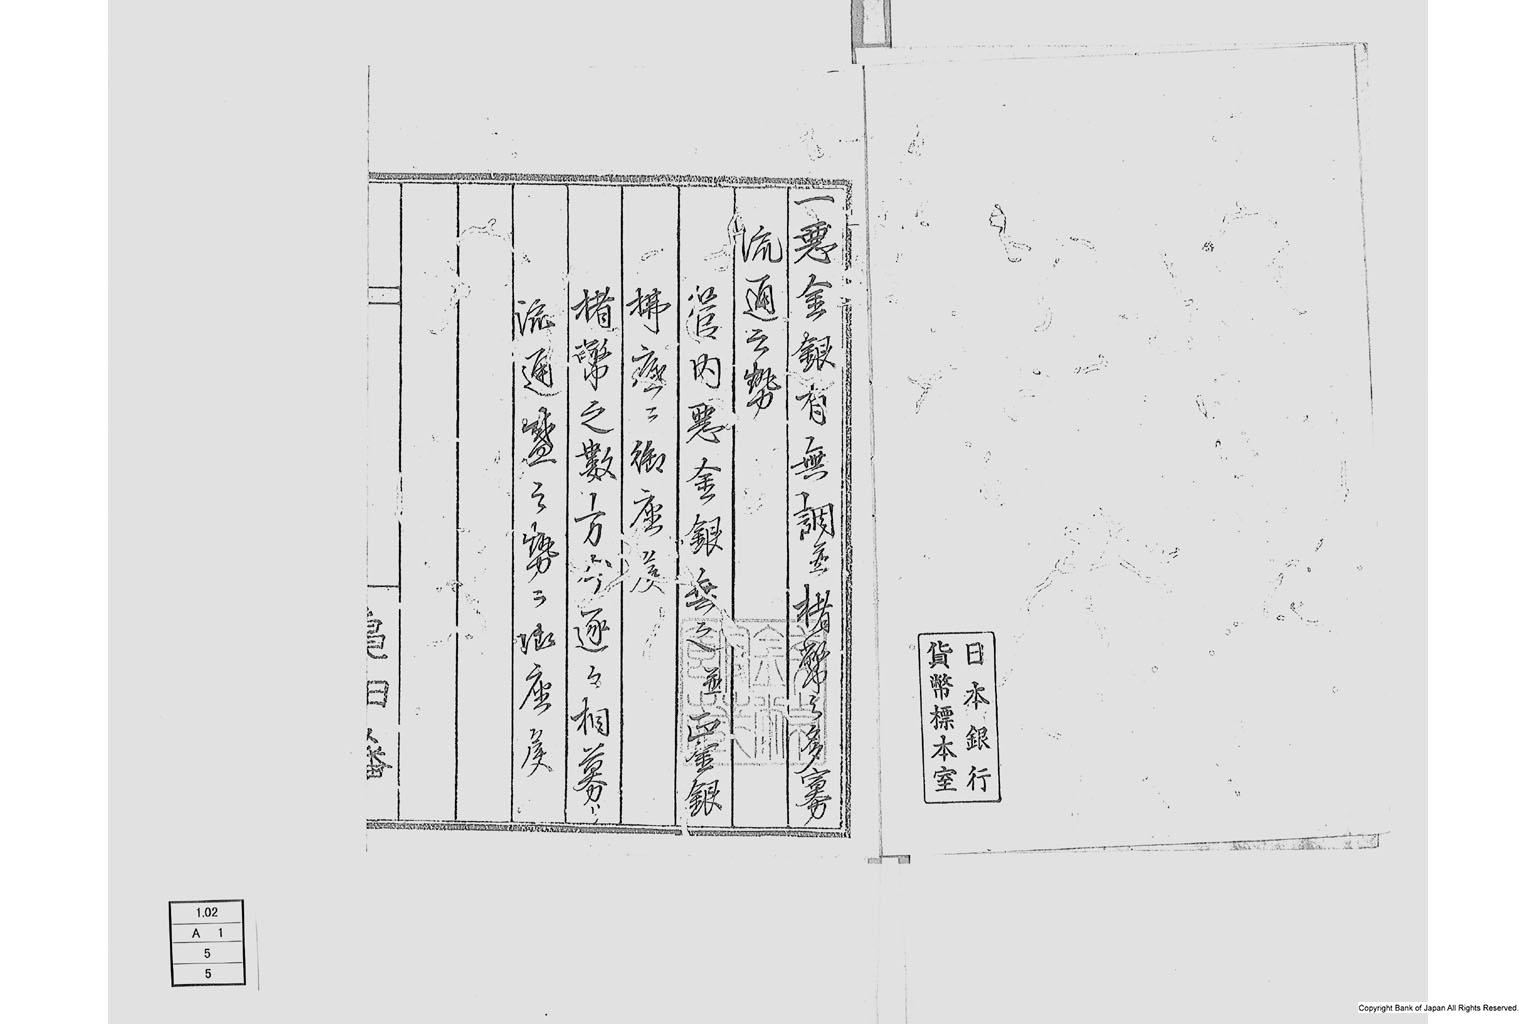 日本銀行
貨幣標本室
一悪金銀有無調並楮幣之多寡
流通之勢
管内悪金銀無之並正金銀
払底ニ御座候
楮幣之數方今逐々相募リ
流通盛之勢ニ御座候
亀田藩
1.02
A 1
5
5
Copyright Bank of Japan All Rights Reserved.